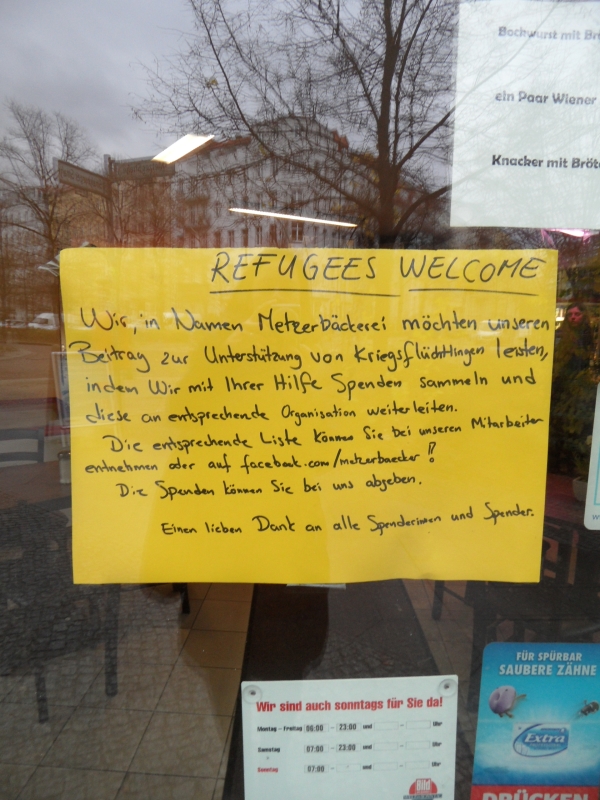 Bockwurst mit Br
ein Paar Wiener
Knacker mit Bröt
REFUGEES WELCOME
Wir, in Namen Metzerbäckerei möchten unseren
Beitrag zur Unterstützung von Kriegsflüchtlingen leisten,
indem Wir mit Ihrer Hilfe Spenden sammeln und
diese an entsprechende Organisation weiterleiten.
Die entsprechende Liste können Sie bei unseren Mitarbeiter
entnehmen oder auf facebook.com/metzerbaecker!!
Die Spenden können Sie bei uns abgeben.
Einen lieben Dank an alle Spenderinnen und Spender.
Wir sind auch sonntags für Sie da!
Montag - Freitag 06:00 - 23:00 und - Uhr
Samstag 07:00 - 23:00 und - Uhr
Sonntag 07:00 - und - Uhr
Bild
FÜR SPÜRBAR
SAUBERE ZÄHNE
Extra
DRÜCKEN